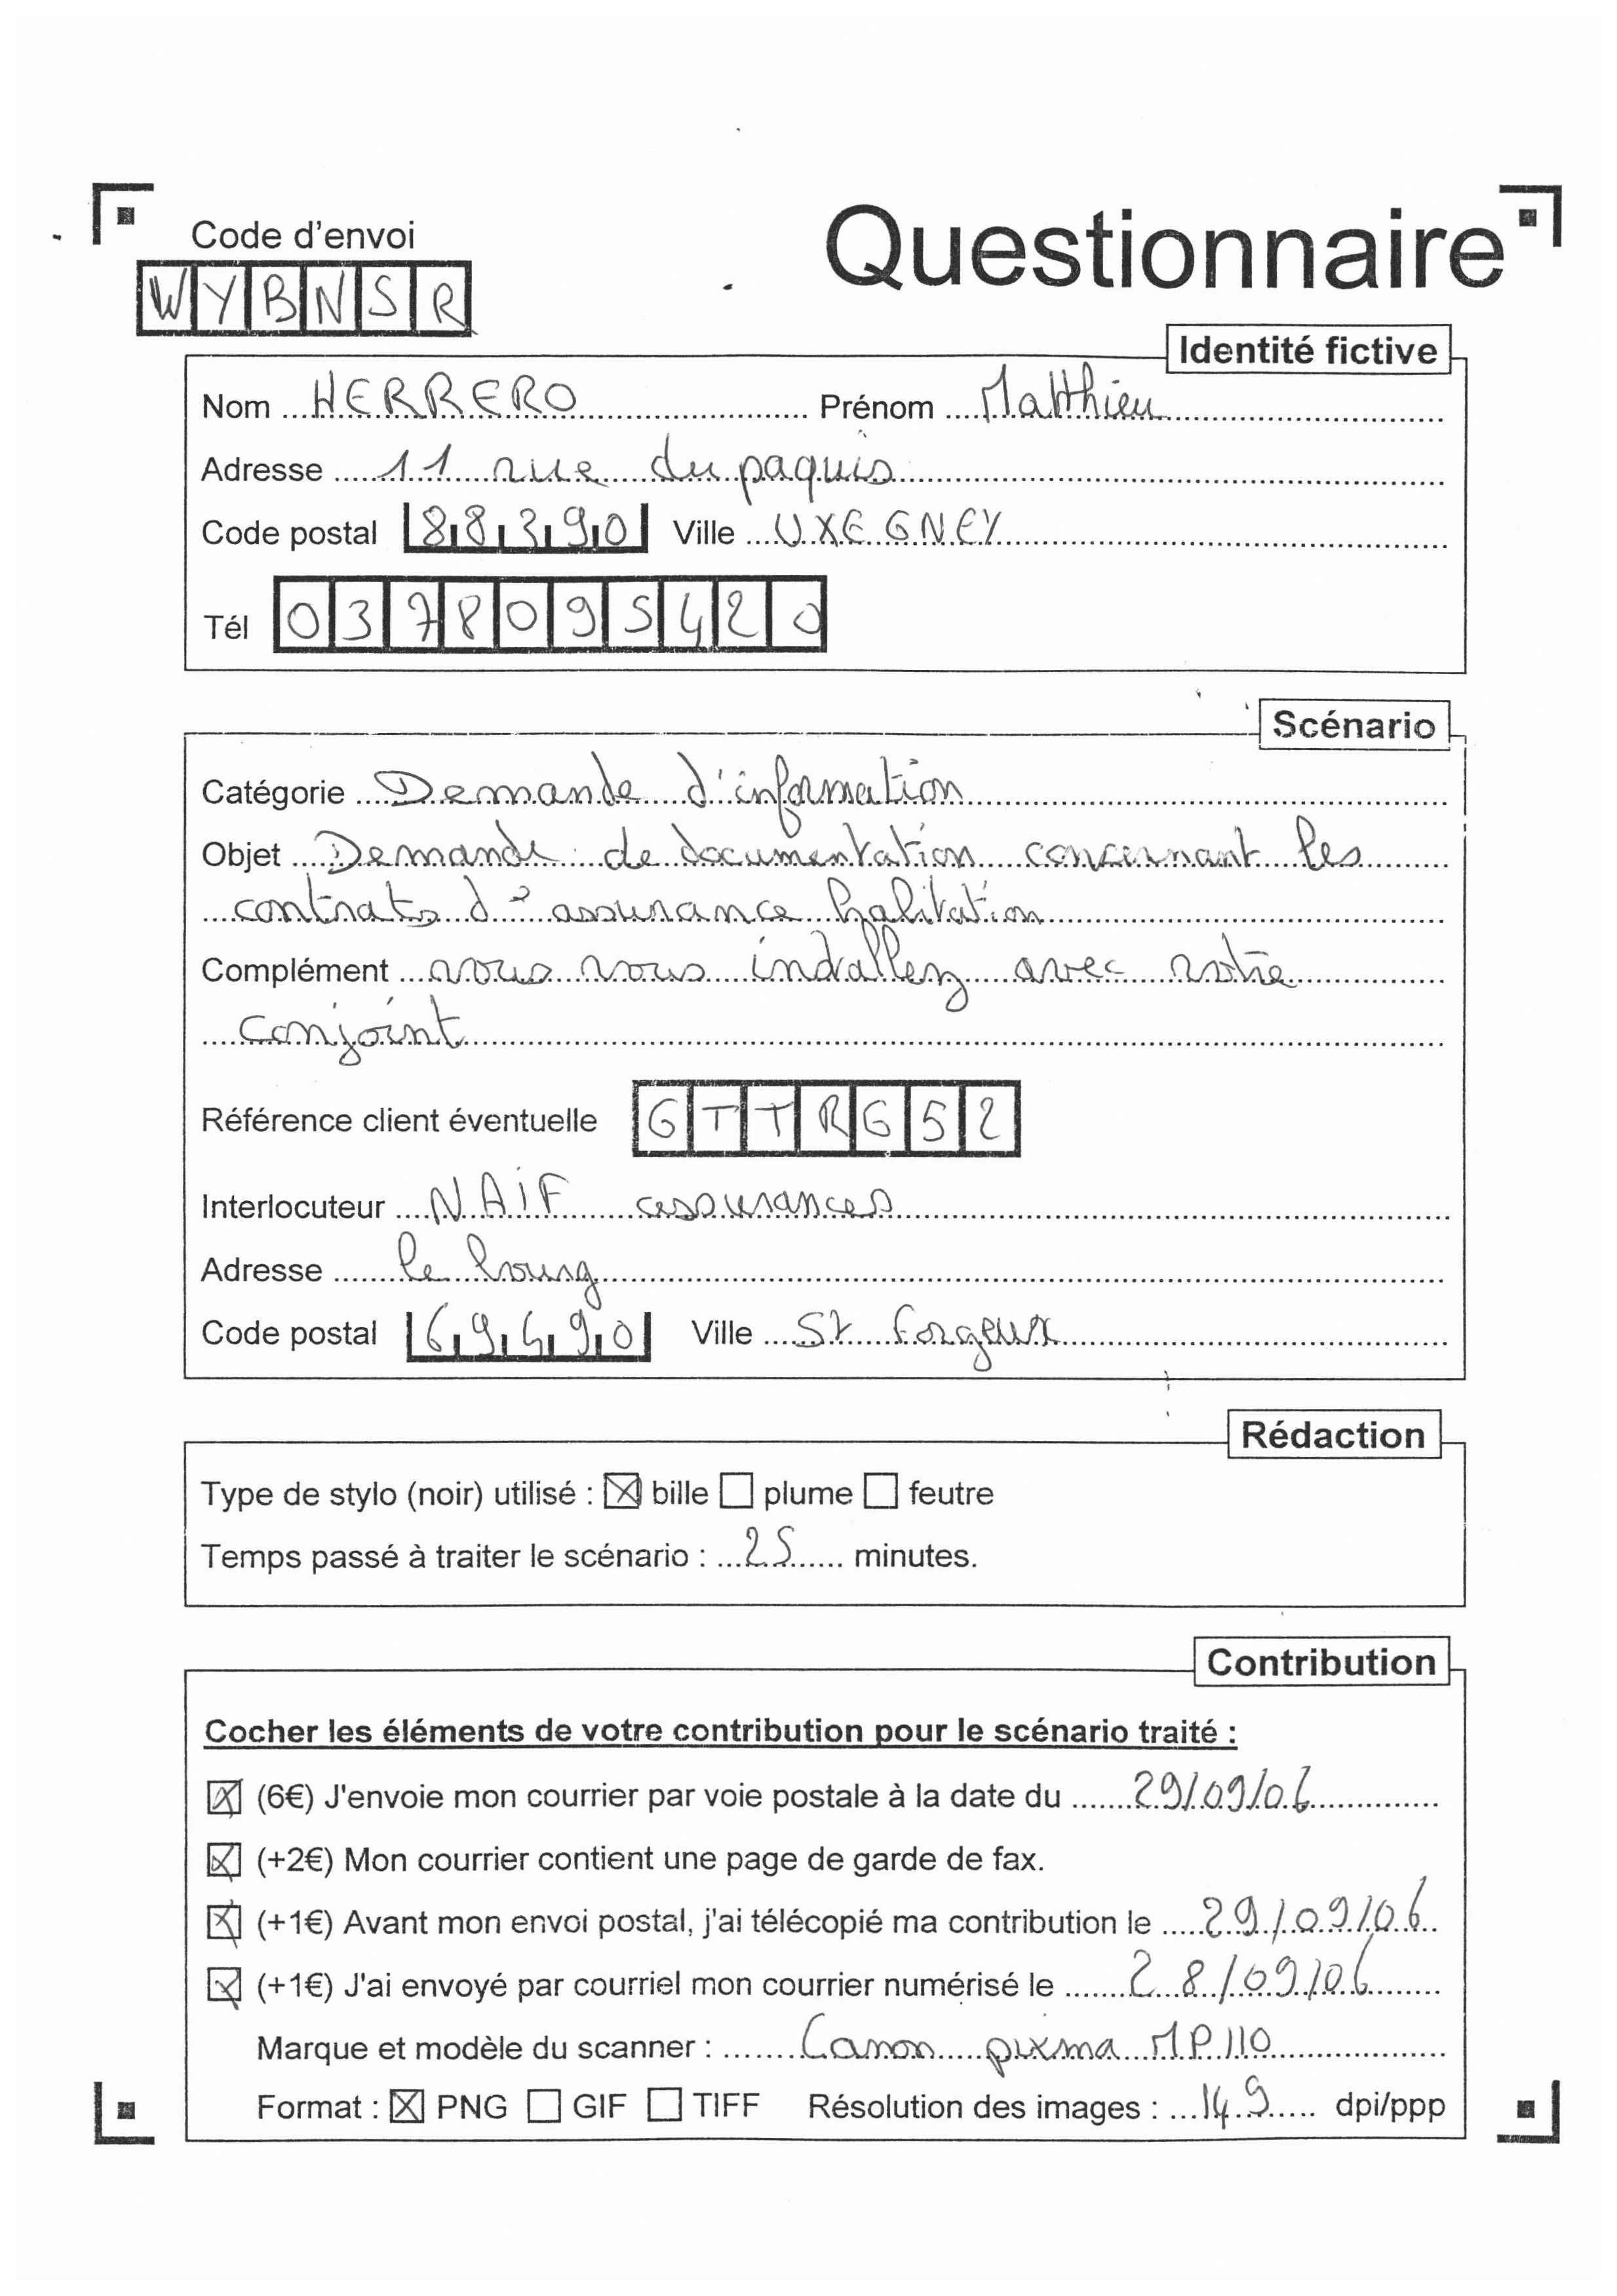 Code d'envoi
Questionnaire
WYBNSR
Identité fictive
Nom HERRERO Prénom Matthieu
Adresse 11 rue du paquis
Code postal 88390 Ville UXEGNEY
Tél 0378095420
Scénario
Catégorie Demande d'information
Objet Demande de documentation concernant les
contrats d'assurance habitation
Complément vous vous installez avec votre
conjoint
Référence client éventuelle GTTRG52
Interlocuteur NAIF assurances
Adresse le bourg
Code postal 69490 Ville St Forgeux
Rédaction
Type de stylo (noir) utilisé : ☒ bille ☐ plume ☐ feutre
Temps passé à traiter le scénario : 25 minutes.
Contribution
Cocher les éléments de votre contribution pour le scénario traité :
☒ (6€) J'envoie mon courrier par voie postale à la date du 29/09/06
☒ (+2€) Mon courrier contient une page de garde de fax.
☒ (+1€) Avant mon envoi postal, j'ai télécopié ma contribution le 29/09/06
☒ (+1€) J'ai envoyé par courriel mon courrier numérisé le 28/09/06
Marque et modèle du scanner : Canon pixma MP110
Format : ☒ PNG ☐ GIF ☐ TIFF Résolution des images : 149 dpi/ppp